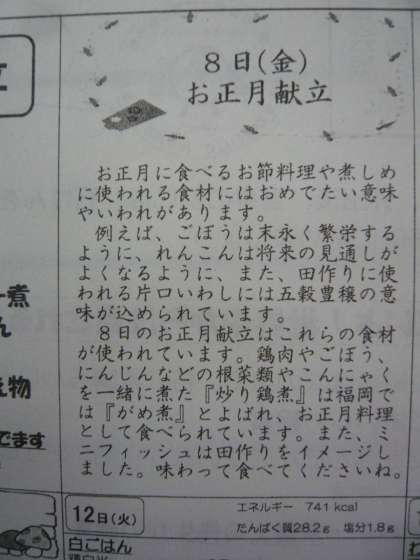 立
８日(金)
お正月献立
お正月に食べるお節料理や煮しめ
に使われる食材にはおめでたい意味
やいわれがあります。
例えば、ごぼうは末永く繁栄する
ように、れんこんは将来の見通しが
よくなるように、また、田作りに使
われる片口いわしには五穀豊穣の意
味が込められています。
８日のお正月献立はこれらの食材
が使われています。鶏肉やごぼう、
にんじんなどの根菜類やこんにゃく
を一緒に煮た『炒り鶏煮』は福岡で
は『がめ煮』とよばれ、お正月料理
として食べられています。また、ミ
ニフィッシュは田作りをイメージし
ました。味わって食べてくださいね。
煮
ん
え物
でます
12日(火)
エネルギー 741 kcal
たんぱく質28.2g 塩分1.8g
白ごはん